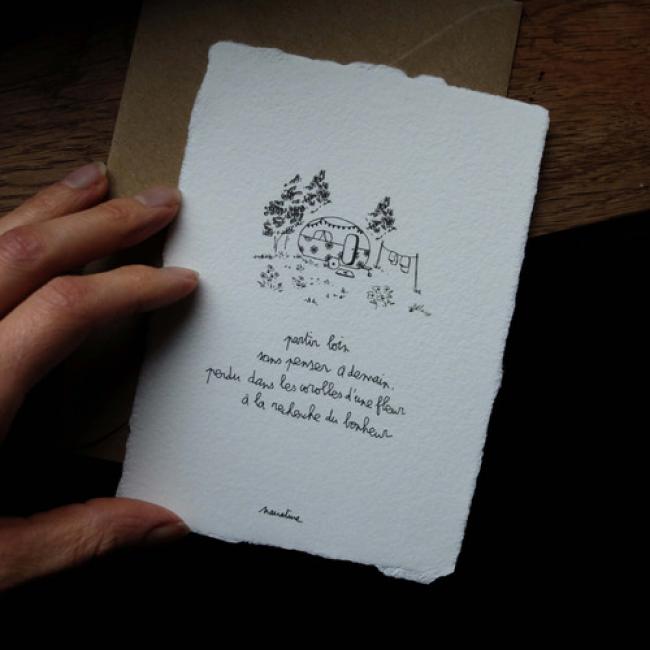 partir loin
sans penser à demain.
perdu dans les corolles d'une fleur
à la recherche du bonheur